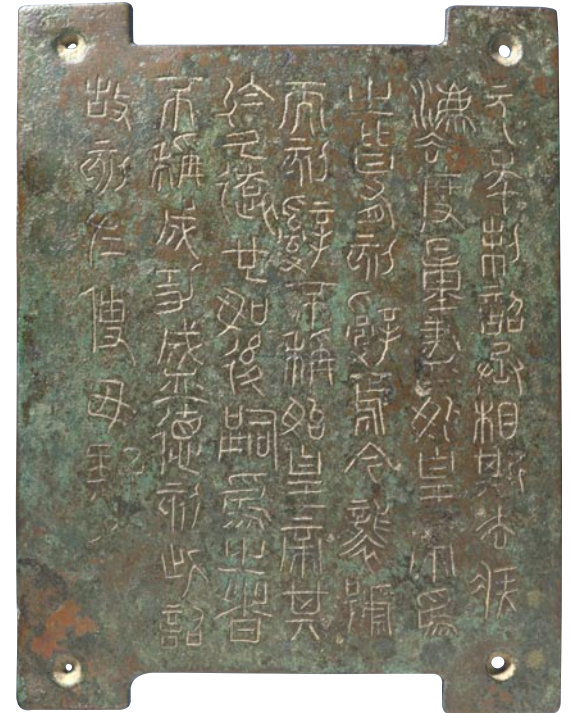 元年制詔丞相斯去疾
灋度量盡始皇帝為
之皆有刻辭焉今襲號
而刻辭不稱始皇帝其
於久遠也如後嗣為之者
不稱成功盛德刻此詔
故刻左使毋疑